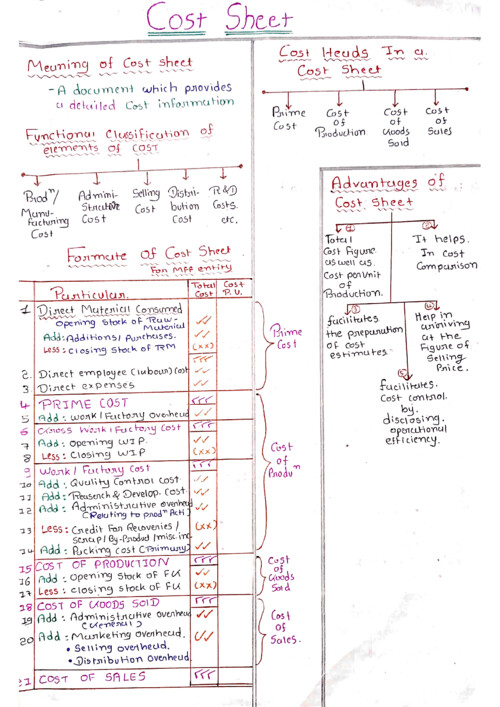 Cost Sheet
Meaning of Cost sheet
- A document which provides
a detailed Cost information
Functional Classification of
elements of COST
Prodⁿ/
Manu-
facturing
Cost
Admini-
strative
Cost
Selling
Cost
Distri-
bution
Cost
R&D
Costs.
etc.
Formate of Cost Sheet
For MFF entity
Particular. Total Cost Cost P.U.
1 Direct Material Consumed
Opening Stock of Raw-
Material ✓✓
Add: Additions/Purchases. ✓✓
Less: Closing Stock of RM (xx)
2. Direct employee (labour) Cost ✓✓
3 Direct expenses ✓✓
4 PRIME COST
5 Add: Work/Factory Overhead ✓✓
6 Gross Work/Factory Cost
7 Add: Opening W.I.P. ✓✓
8 Less: Closing W.I.P (xx)
9 Work/Factory Cost
10 Add: Quality Control Cost ✓✓
11 Add: Research & Develop. Cost ✓✓
12 Add: Administrative overhead ✓✓
(Relating to prodⁿ Acti)
13 Less: Credit For Recoveries/ (xx)
Scrap/By-Product/misc.inc
14 Add: Packing Cost (Primary) ✓✓
15 COST OF PRODUCTION
16 Add: Opening Stock of FG ✓✓
17 Less: closing Stock of FG (xx)
18 COST OF GOODS SOLD
19 Add: Administrative overhead ✓✓
(General)
20 Add: Marketing overhead. ✓✓
• Selling overhead.
• Distribution overhead.
21 COST OF SALES
Prime
Cost
Cost
of
ProdUⁿ
Cost
of
Goods
Sold
Cost
of
Sales.
Cost Heads In a
Cost Sheet
Prime
Cost
Cost
of
Production
Cost
of
Goods
Sold
Cost
of
Sales
Advantages of
Cost sheet
①
Total
Cost Figure
as well as
Cost per Unit
of
Production.
②
It helps.
In Cost
Comparison
③
facilitates
the preparation
of cost
estimates.
④
Help in
arriving
at the
Figure of
Selling
Price.
⑤
facilitates.
Cost control.
by.
disclosing.
operational
efficiency.